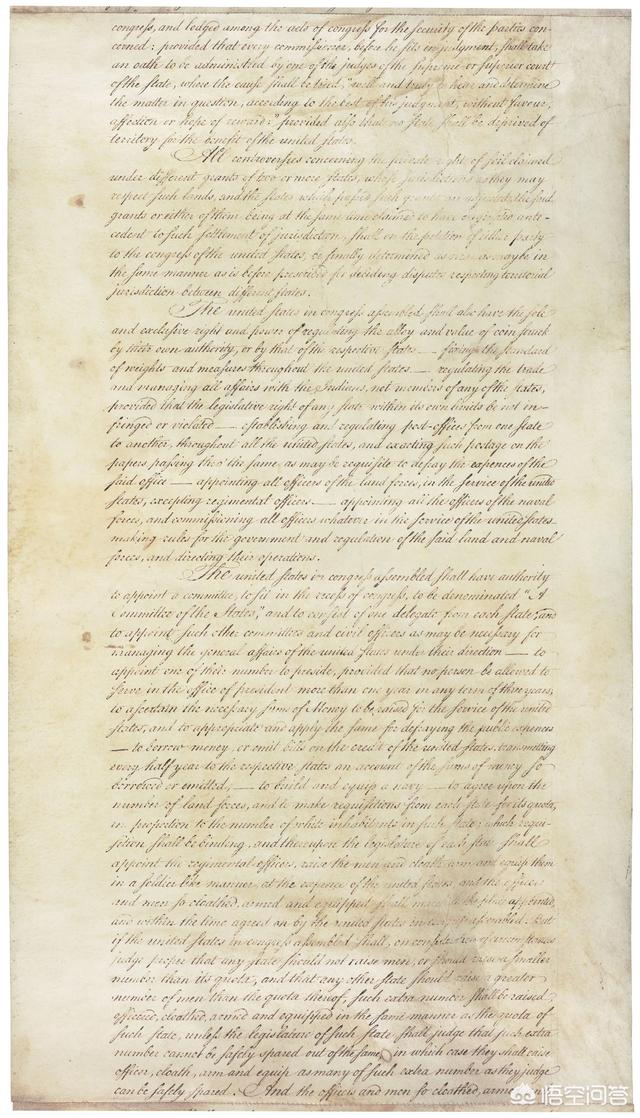 congress, and lodged among the acts of congress for the security of the parties con-
cerned: provided that every commissioner, before he sits in judgment, shall take
an oath to be administered by one of the judges of the supreme or superior court
of the state, where the cause shall be tried, "well and truly to hear and determine
the matter in question, according to the best of his judgment, without favour,
affection or hope of reward:" provided also that no state shall be deprived of
territory for the benefit of the united states.
All controversies concerning the private right of soil claimed
under different grants of two or more states, whose jurisdictions as they may
respect such lands, and the states which passed such grants are adjusted, the said
grants or either of them being at the same time claimed to have originated ante-
cedent to such settlement of jurisdiction, shall on the petition of either party
to the congress of the united states, be finally determined as near as may be in
the same manner as is before prescribed for deciding disputes respecting territorial
jurisdiction between different states.
The united states in congress assembled shall also have the sole
and exclusive right and power of regulating the alloy and value of coin struck
by their own authority, or by that of the respective states — fixing the standard
of weights and measures throughout the united states — regulating the trade
and managing all affairs with the Indians, not members of any of the states,
provided that the legislative right of any state within its own limits be not in-
fringed or violated — establishing and regulating post-offices from one state
to another, throughout all the united states, and exacting such postage on the
papers passing thro' the same as may be requisite to defray the expences of the
said office — appointing all officers of the land forces, in the service of the united
states, excepting regimental officers — appointing all the officers of the naval
forces, and commissioning all officers whatever in the service of the united states
making rules for the government and regulation of the said land and naval
forces, and directing their operations.
The united states in congress assembled shall have authority
to appoint a committee, to sit in the recess of congress, to be denominated "A
Committee of the States," and to consist of one delegate from each state; and
to appoint such other committees and civil officers as may be necessary for
managing the general affairs of the united states under their direction — to
appoint one of their number to preside, provided that no person be allowed to
serve in the office of president more than one year in any term of three years,
to ascertain the necessary sums of Money to be raised for the service of the united
states, and to appropriate and apply the same for defraying the public expences
— to borrow money, or emit bills on the credit of the united states, transmitting
every half year to the respective states an account of the sums of money so
borrowed or emitted, — to build and equip a navy — to agree upon the
number of land forces, and to make requisitions from each state for its quota,
in proportion to the number of white inhabitants in such state; which requi-
sition shall be binding, and thereupon the legislature of each state shall
appoint the regimental officers, raise the men and cloath, arm and equip them
in a soldier like manner, at the expence of the united states, and the officers
and men so cloathed, armed and equipped shall march to the place appointed,
and within the time agreed on by the united states in congress assembled: But
if the united states in congress assembled shall, on consideration of circumstances
judge proper that any state should not raise men, or should raise a smaller
number than its quota, and that any other state should raise a greater
number of men than the quota thereof, such extra number shall be raised,
officered, cloathed, armed and equipped in the same manner as the quota of
such state, unless the legislature of such state shall judge that such extra
number cannot be safely spared out of the same, in which case they shall raise
officer, cloath, arm and equip as many of such extra number as they judge
can be safely spared. And the officers and men so cloathed, armed
悟空问答